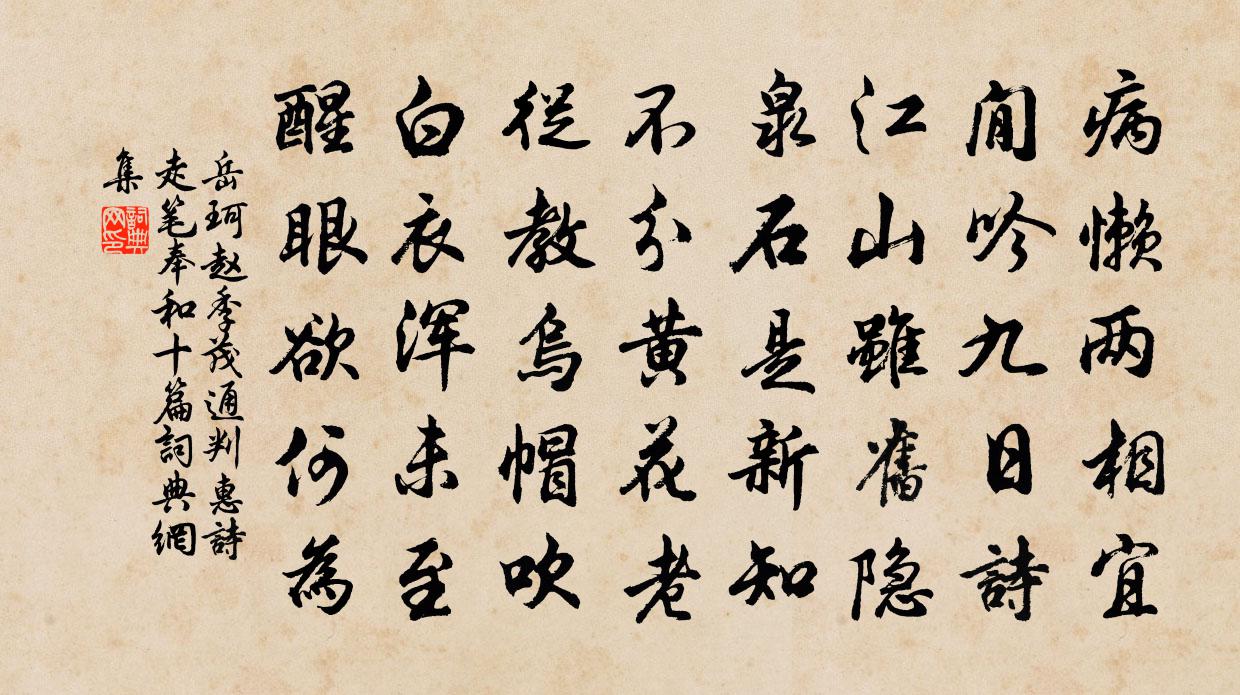 病懒两相宜
閒吟九日詩
江山雖舊隐
泉石是新知
不分黄花老
從教烏帽吹
白衣浑未至
醒眼欲何為
岳珂赵季茂通判惠詩
走笔奉和十篇詞典網
集
詞典
网印